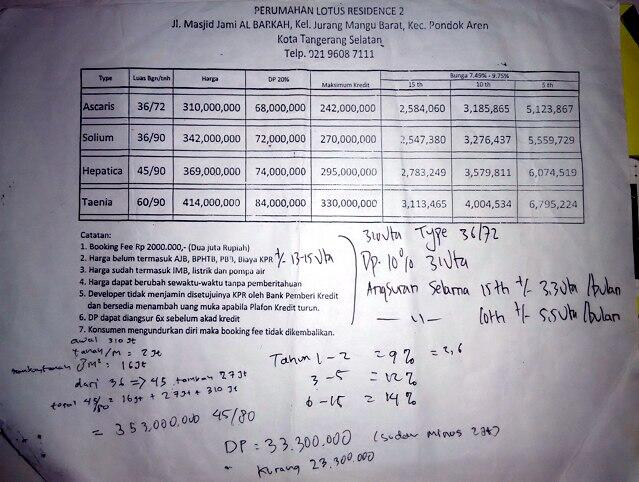 PERUMAHAN LOTUS RESIDENCE 2
Jl. Masjid Jami AL BARKAH, Kel. Jurang Mangu Barat, Kec. Pondok Aren
Kota Tangerang Selatan
Telp. 021 9608 7111
Type Luas Bgn/tnh Harga DP 20% Maksimum Kredit Bunga 7.49% - 9.75%
15 th 10 th 5 th
Ascaris 36/72 310,000,000 68,000,000 242,000,000 2,584,060 3,185,865 5,123,867
Solium 36/90 342,000,000 72,000,000 270,000,000 2,547,380 3,276,437 5,559,729
Hepatica 45/90 369,000,000 74,000,000 295,000,000 2,783,249 3,579,811 6,074,519
Taenia 60/90 414,000,000 84,000,000 330,000,000 3,113,465 4,004,534 6,795,224
Catatan:
1. Booking Fee Rp 2000.000,- (Dua juta Rupiah)
2. Harga belum termasuk AJB, BPHTB, PBB, Biaya KPR +/- 13-15 Jta
3. Harga sudah termasuk IMB, listrik dan pompa air
4. Harga dapat berubah sewaktu-waktu tanpa pemberitahuan
5. Developer tidak menjamin disetujuinya KPR oleh Bank Pemberi Kredit
dan bersedia menambah uang muka apabila Plafon Kredit turun.
6. DP dapat diangsur 6x sebelum akad kredit
7. Konsumen mengundurkan diri maka booking fee tidak dikembalikan.
310 Jta Type 36/72
DP 10% 31 Jta
Angsuran Selama 15 th +/- 3.3 Jta /bulan
— 11 — 10th +/- 5.5 Jta /bulan
awal 310 Jt
tanah/m = 2 Jt
8 m² = 16 Jt
dari 36 => 45 tambah 27 Jt
total 45/80 = 16 Jt + 27 Jt + 310 Jt
= 353,000,000 45/80
Tahun 1 - 2 = 9% = 2,6
3 - 5 = 12%
6 - 15 = 14%
DP = 33.300.000 (sudah minus 2 Jt)
Kurang 23.300.000